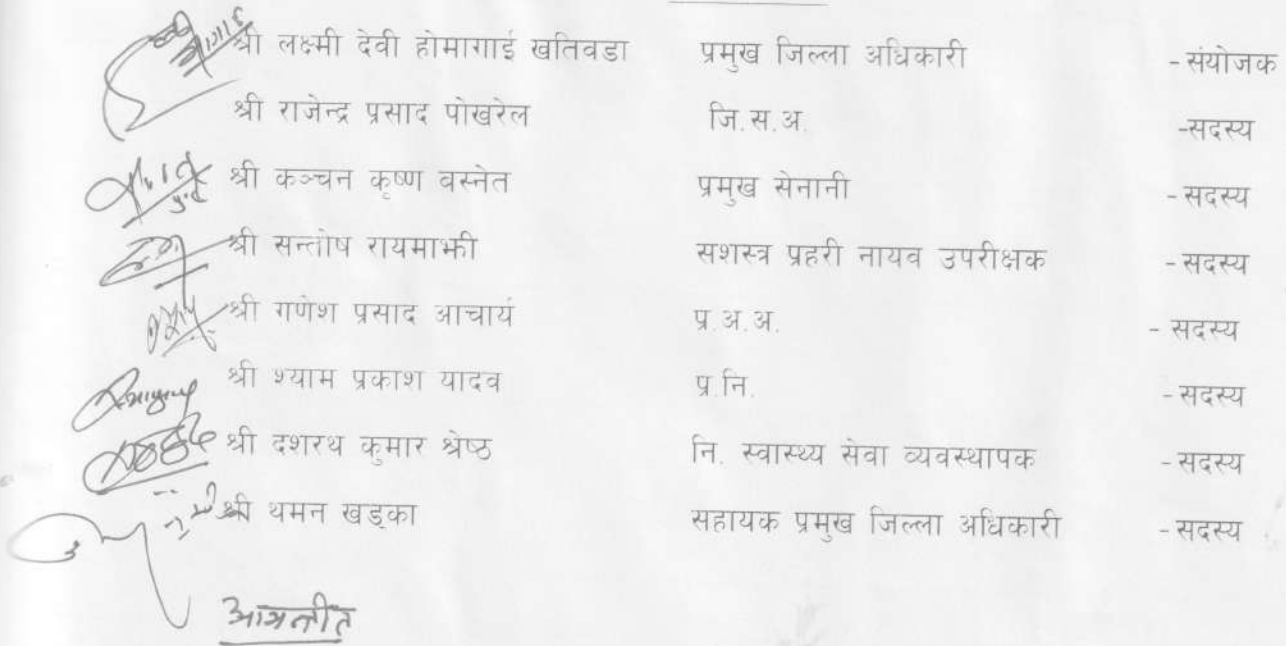 श्री लक्ष्मी देवी होमागाई खतिवडा प्रमुख जिल्ला अधिकारी -संयोजक
श्री राजेन्द्र प्रसाद पोखरेल जि.स.अ. -सदस्य
श्री कञ्चन कृष्ण वस्नेत प्रमुख सेनानी -सदस्य
श्री सन्तोष रायमाझी सशस्त्र प्रहरी नायव उपरीक्षक -सदस्य
श्री गणेश प्रसाद आचार्य प्र.अ.अ. - सदस्य
श्री श्याम प्रकाश यादव प्र.नि. -सदस्य
श्री दशरथ कुमार श्रेष्ठ नि. स्वास्थ्य सेवा व्यवस्थापक -सदस्य
श्री थमन खड्का सहायक प्रमुख जिल्ला अधिकारी -सदस्य